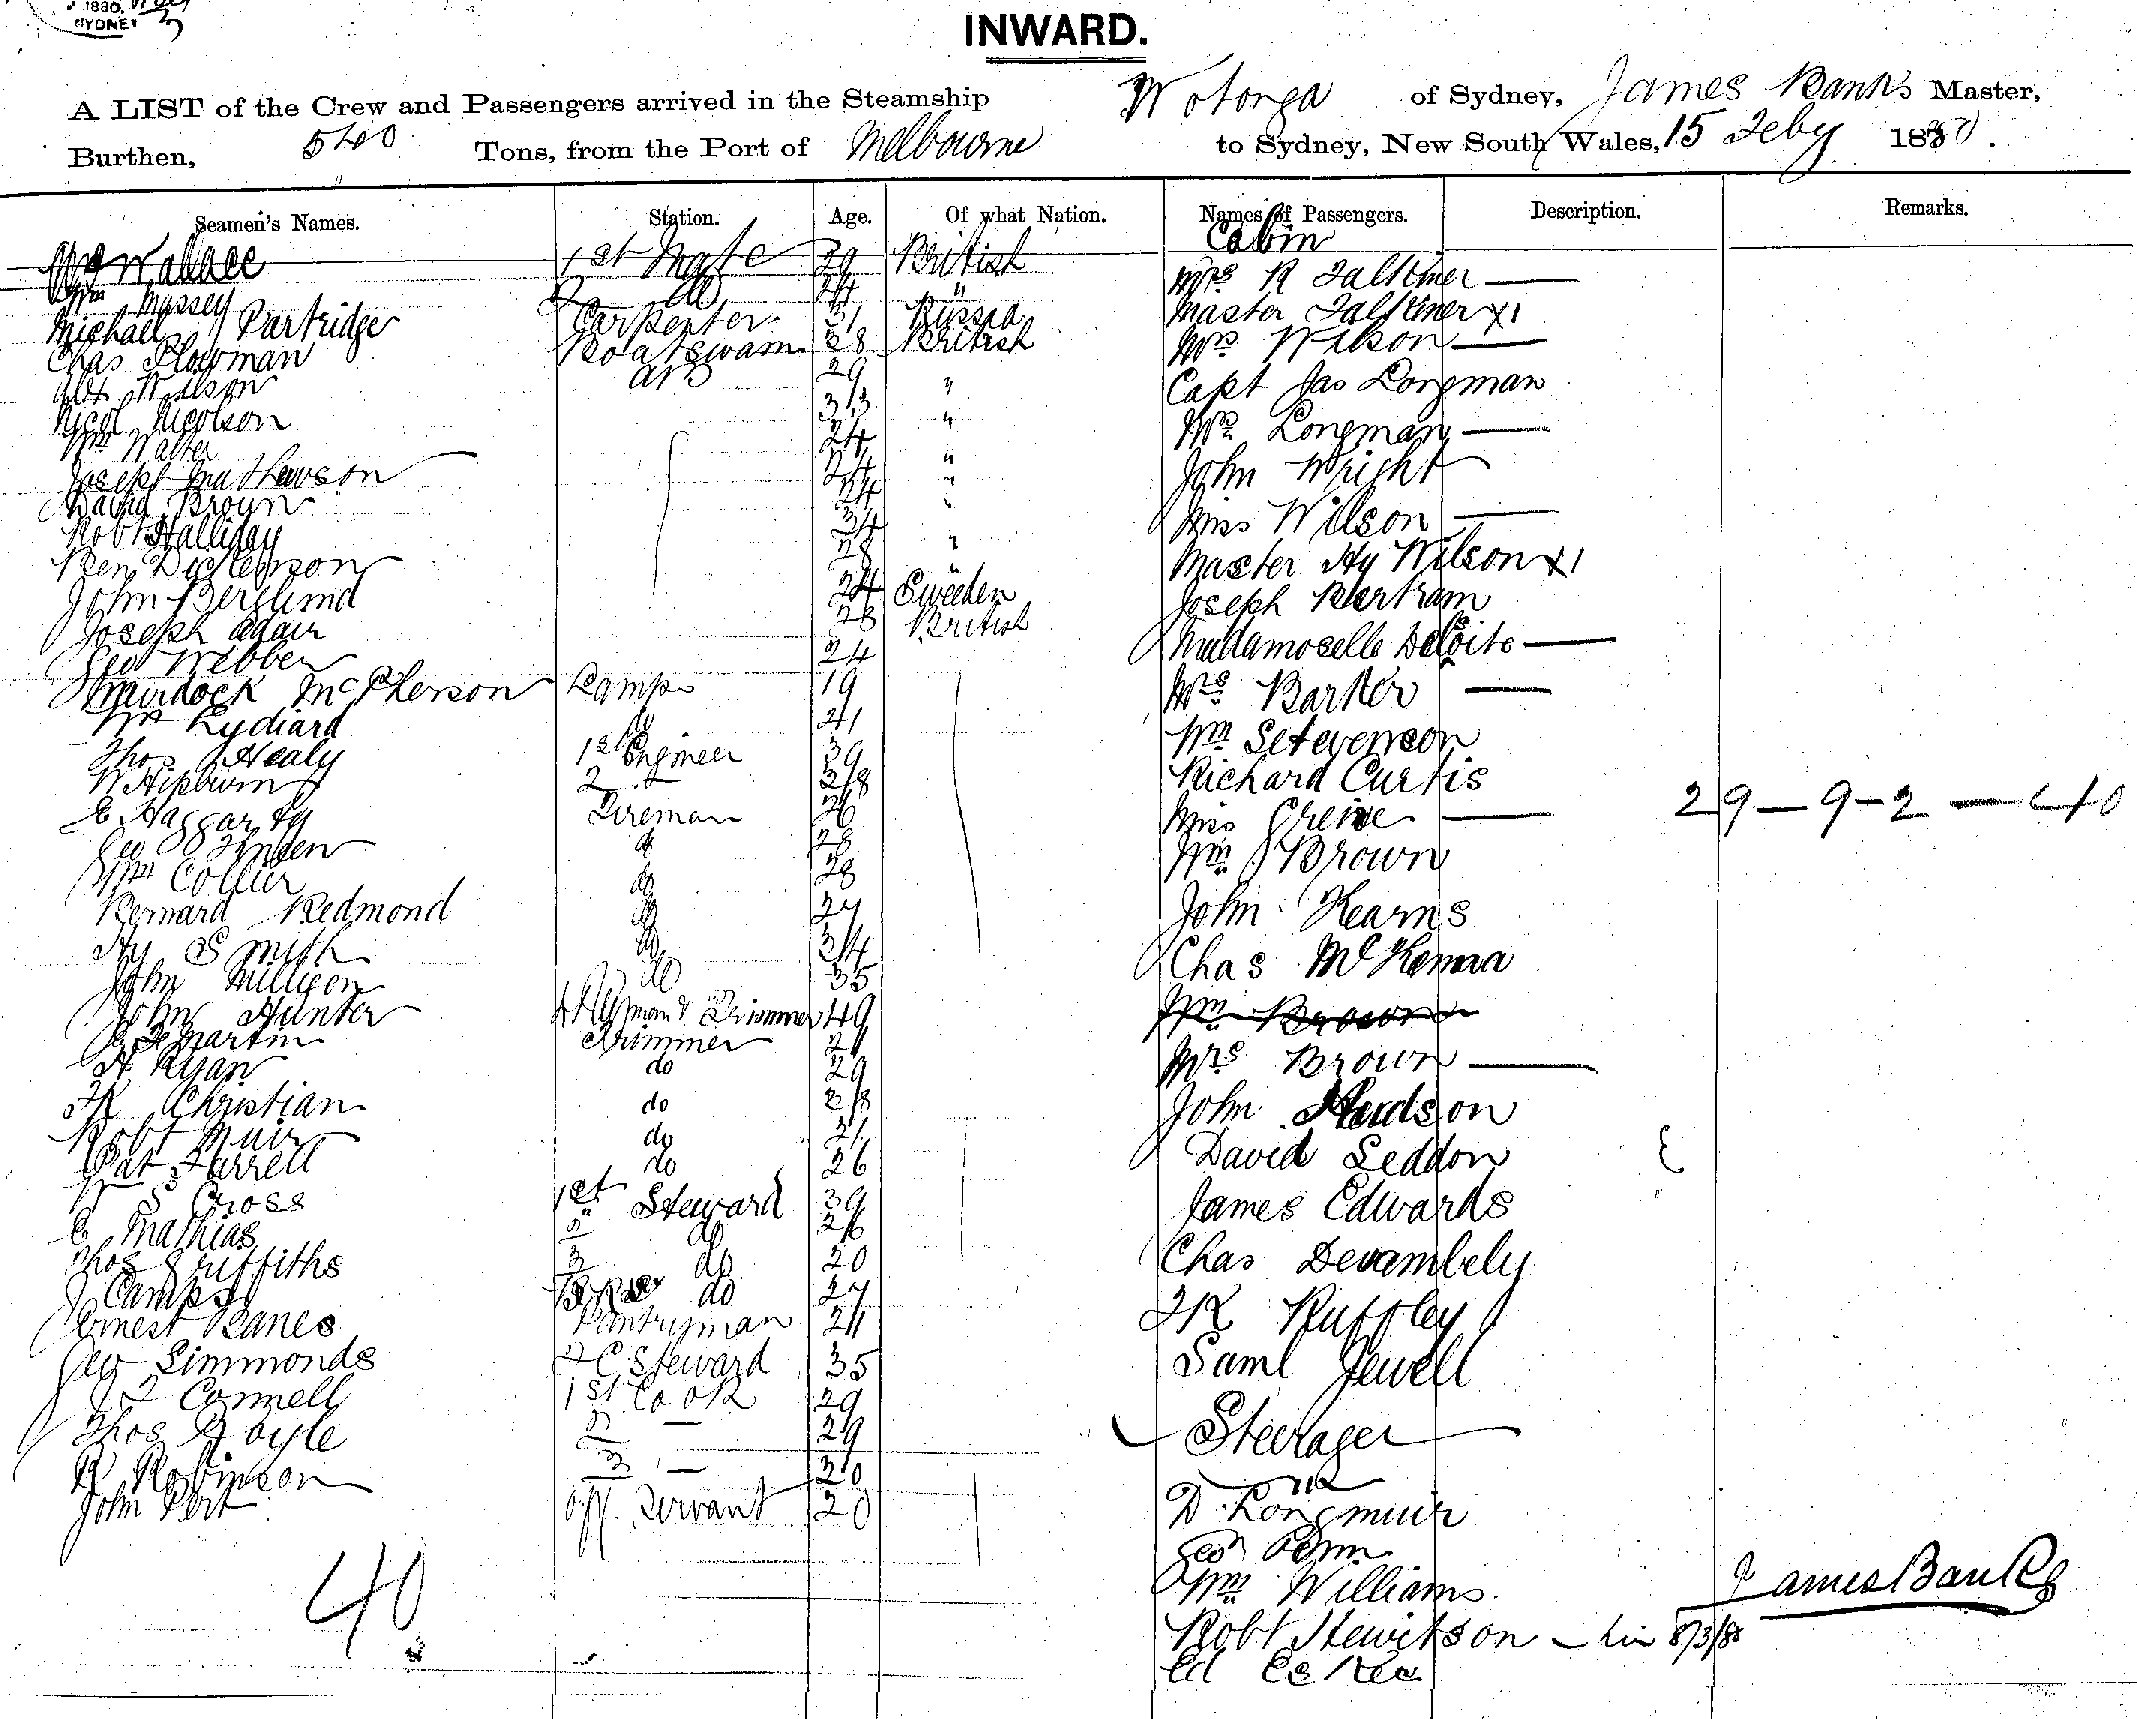 1880.
SYDNEY
INWARD.
A LIST of the Crew and Passengers arrived in the Steamship Wotonga of Sydney, James Banks Master,
Burthen, 540 Tons, from the Port of Melbourne to Sydney, New South Wales, 15 Feby 1880.
Seamen's Names. Station. Age. Of what Nation. Names of Passengers. Description. Remarks.
Cabin
Wm Wallace 1st Mate 29 British Mrs R Falkiner —
Wm Massey 2 do 24 " Master Falkiner x1
Michael Partridge Carpenter 31 Russia Mrs Wilson —
Chas Plowman Boatswain 28 British Capt Jas Longman
Wilson AB 29 " Mrs Longman —
Nicol Nicolson 33 " John Wright
Wm Walter 24 " Miss Wilson —
Joseph Mathewson 24 " Master Hy Wilson x1
David Brown 24 " Joseph Bertram
Robt Halliday 34 " Madamoselle —
Ben Dickenson 28 Mrs Barker —
John Berglund 24 Sweden Wm Setevenson
Joseph Adair 28 British Richard Curtis
Geo Webber 24 Miss —
Murdock McPherson Lamps 19 Wm Brown
Wm Lydiard do 21 John Kearns
Thos Healy 1st Engineer 39 Chas McKenna
2 28 Wm Brown
E Haggarty Fireman 26 Mrs Brown —
Geo do 28 John Hudson
Wm Collier do 28 David Seddon
Bernard Redmond do 27 James Edwards
Hy Smith do 34 Chas Devambely
John Milligen do 35 FR Ruffley
John Hunter & Trimmer 49 Saml Jewell
Martin Trimmer 21
A Ryan do 29
FR Christian do 28
Robt Muir do 21
Pat Farrell do 26
S Cross 1st Steward 39
C Mathias 2 do 26
Thos Griffiths 3 do 20
J Camps do 27
Ernest Banes Pantryman 24
Geo Simmonds F C Steward 35
J F Connell 1st Cook 29
Thos Doyle 2 — 29
R Robinson 3 — 20
John Port Off. Servant 20
40
29 — 9 - 2 — 40
Steerage
D Longmuir
Geo
Wm Williams
Robt Hewitson 8/3/80
Ed
James Banks